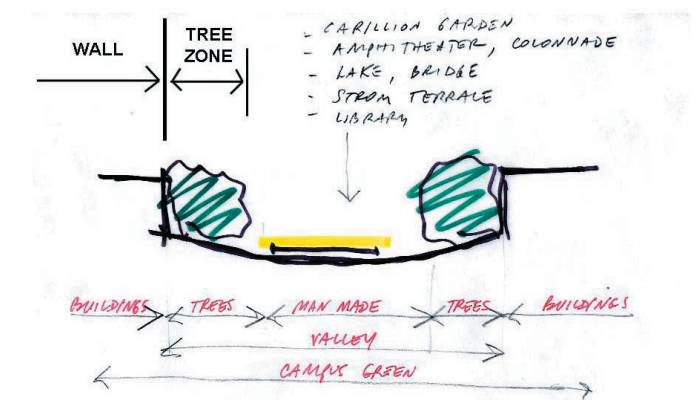 WALL
TREE
ZONE
- CARILLION GARDEN
- AMPHITHEATER, COLONNADE
- LAKE, BRIDGE
- STROM TERRALE
- LIBRARY
BUILDINGS TREES MAN MADE TREES BUILDINGS
VALLEY
CAMPUS GREEN